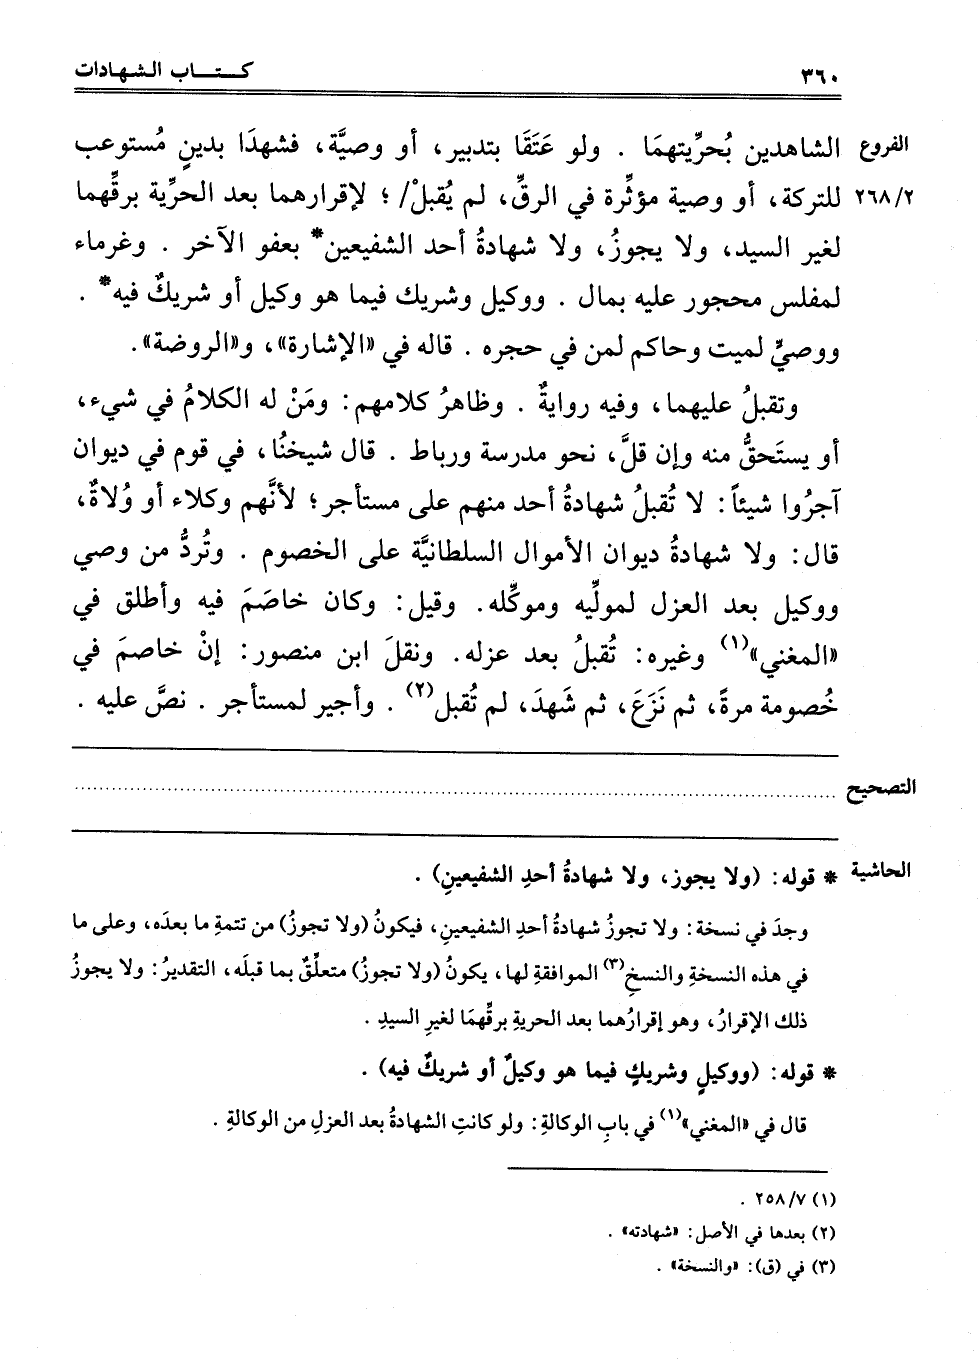 ٣٦٠ كـتـاب الـشـهـادات
الفروع الشاهدين بُحرِّيتهمَا . ولو عَتَقَا بتدبير، أو وصيَّة، فشهدَا بدينٍ مُستوعب
٢٦٨/٢ للتركة، أو وصية مؤثِّرة في الرقِّ، لم يُقبلْ/ ؛ لإقرارهما بعد الحرِّية برقِّهما
لغير السيد، ولا يجوزُ، ولا شهادةُ أحد الشفيعين* بعفو الآخر . وغرماء
لمفلس محجور عليه بمال . ووكيل وشريك فيما هو وكيل أو شريكٌ فيه* .
ووصيٍّ لميت وحاكم لمن في حجره . قاله في «الإشارة»، و«الروضة».
وتقبلُ عليهما، وفيه روايةٌ . وظاهرُ كلامهم: ومَنْ له الكلامُ في شيء،
أو يستَحقُّ منه وإن قلَّ، نحو مدرسة ورباط . قال شيخنُا، في قوم في ديوان
آجرُوا شيئاً: لا تُقبلُ شهادةُ أحد منهم على مستأجر؛ لأنَّهم وكلاء أو وُلاةٌ،
قال: ولا شهادةُ ديوان الأموال السلطانيَّة على الخصوم . وتُردُّ من وصي
ووكيل بعد العزل لمولِّيه وموكِّله. وقيل: وكان خاصَمَ فيه وأطلق في
«المغني»(١) وغيره: تُقبلُ بعد عزله. ونقلَ ابن منصور: إنْ خاصمَ في
خُصومة مرةً، ثم نَزَعَ، ثم شَهدَ، لم تُقبل(٢) . وأجير لمستأجر . نصَّ عليه .
التصحيح ........................................
الحاشية * قوله: (ولا يجوز، ولا شهادةُ أحدِ الشفيعينِ) .
وجدَ في نسخة: ولا تجوزُ شهادةُ أحدِ الشفيعينِ، فيكونُ (ولا تجوزُ) من تتمةِ ما بعدَه، وعلى ما
في هذه النسخةِ والنسخِ(٣) الموافقةِ لها، يكونُ (ولا تجوزُ) متعلِّقٌ بما قبلَه، التقديرُ: ولا يجوزُ
ذلك الإقرارُ، وهو إقرارُهما بعد الحريةِ برقِّهمَا لغيرِ السيدِ .
* قوله: (ووكيلٍ وشريكٍ فيما هو وكيلٌ أو شريكٌ فيه) .
قال في «المغني»(١) في بابِ الوكالةِ: ولو كانتِ الشهادةُ بعد العزلِ من الوكالةِ .
(١) ٢٥٨/٧ .
(٢) بعدها في الأصل: «شهادته» .
(٣) في (ق): «والنسخة» .